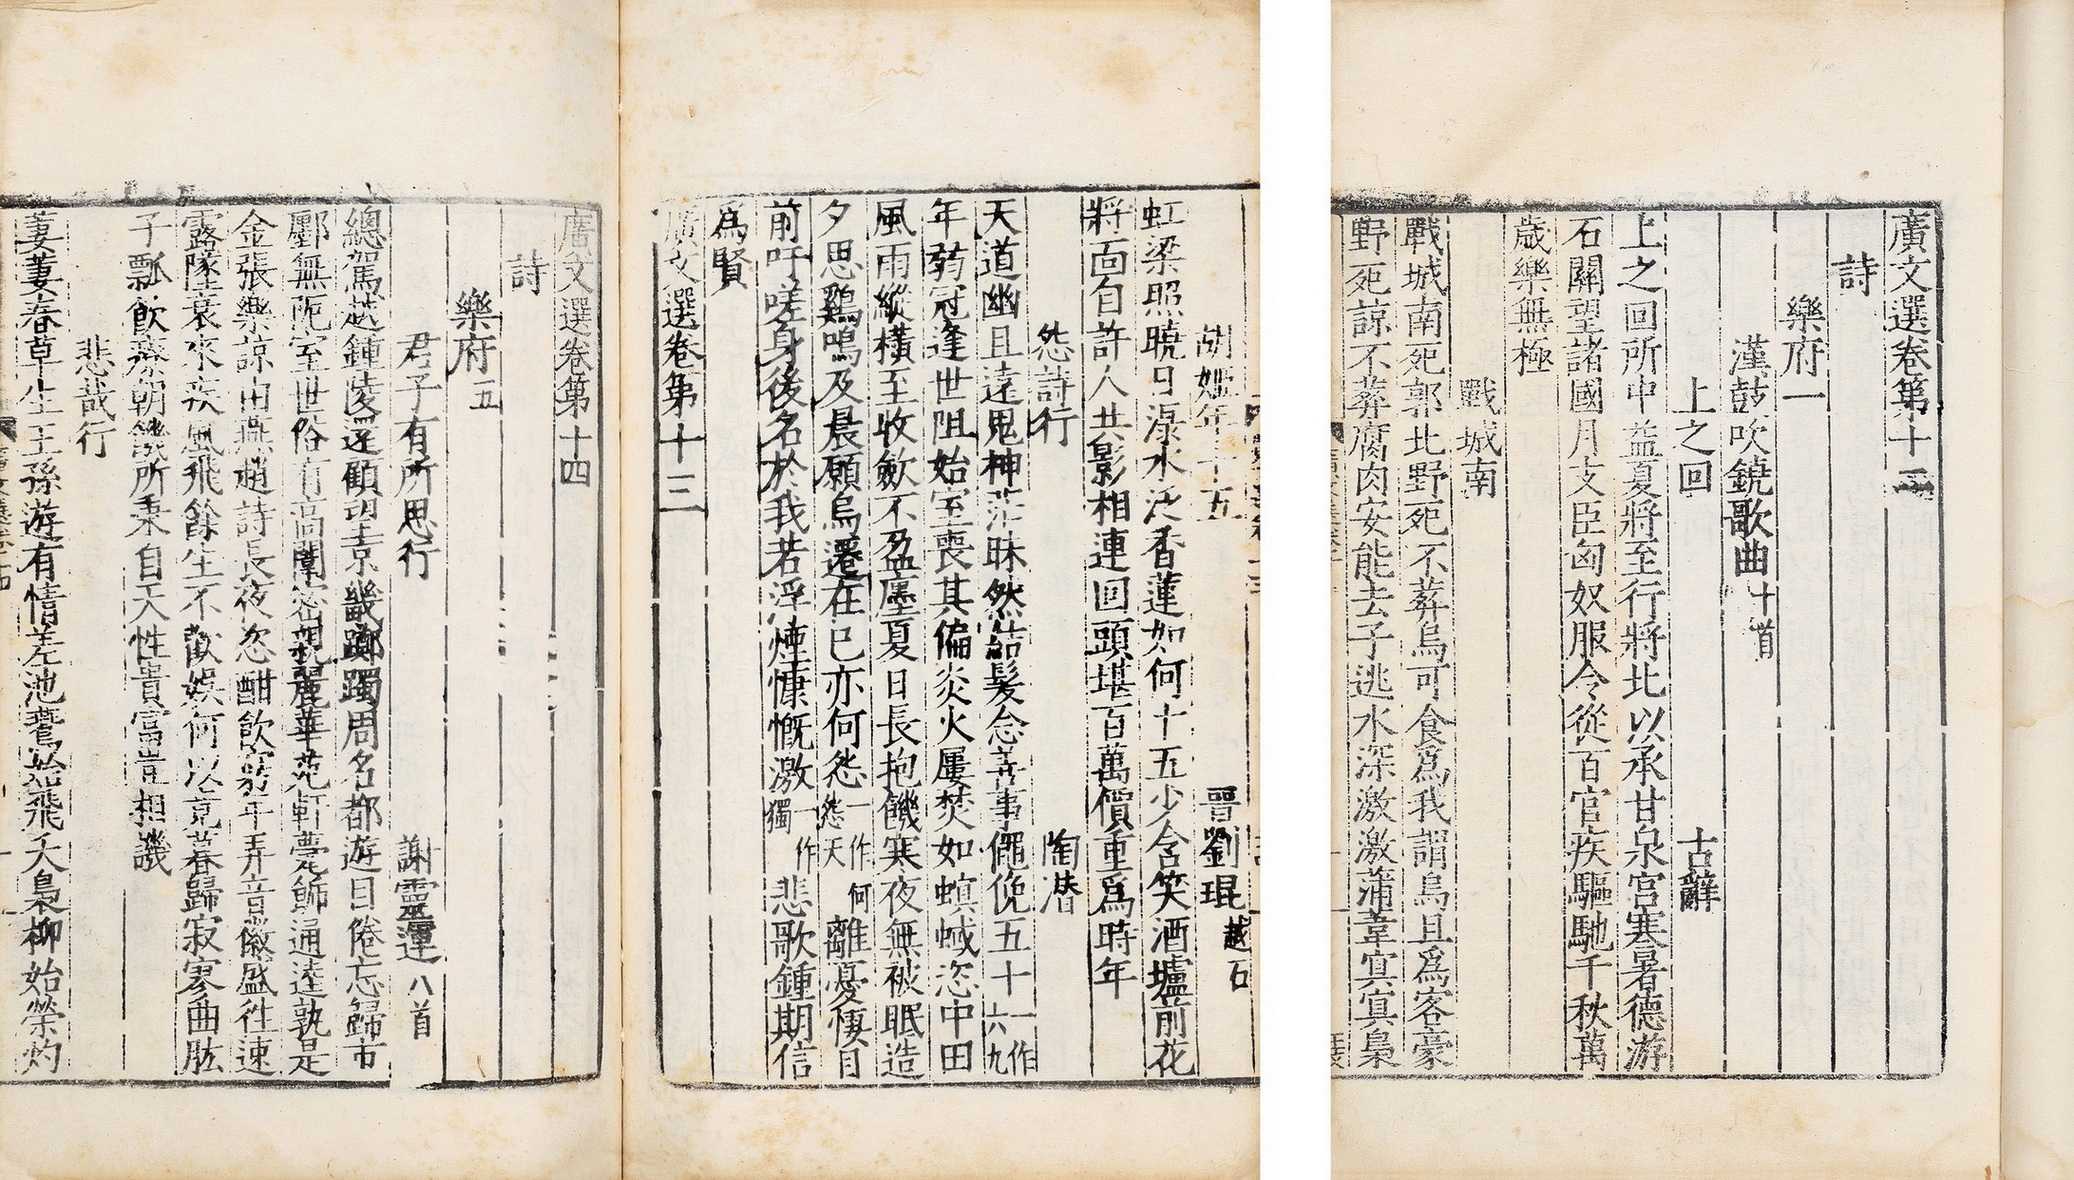 廣文選卷第十三
詩
樂府一
漢鼓吹鐃歌曲十首
上之回 古辭
上之回所中益夏將至行將北以承甘泉宮寒暑德游
石關望諸國月支臣匈奴服令從百官疾驅馳千秋萬
歲樂無極
戰城南
戰城南死郭北野死不葬烏可食爲我謂烏且爲客豪
野死諒不葬腐肉安能去子逃水深激激蒲葦㝠㝠梟
胡姬年十五 晉劉琨越石
虹梁照曉日淥水泛香蓮如何十五少含笑酒壚前花
將面自許人共影相連回頭堪百萬價重爲時年
怨詩行 陶潛
天道幽且遠鬼神茫昧然結髮念善事僶俛五十一作六九
年弱冠逢世阻始室喪其偏炎火屢焚如螟蜮恣中田
風雨縱橫至收斂不盈廛夏日長抱饑寒夜無被眠造
夕思鷄鳴及晨願烏遷在已亦何怨一作何怨天離憂悽目
前吁嗟身後名於我若浮煙慷慨激一作獨悲歌鍾期信
爲賢
廣文選卷第十三
廣文選卷第十四
詩
樂府五
君子有所思行 謝靈運八首
總駕越鍾陵還顧望京畿躑躅周名都遊目倦忘歸市
鄽無阨室世俗有高闈密親麗華苑軒甍飾通逵孰是
金張樂諒由燕趙詩長夜恣酣飲窮年弄音徽盛徃速
露墜衰來疾風飛餘生不歡娛何以竟暮歸寂寥曲肱
子瓢飲療朝饑所秉自天性貴富豈相譏
悲哉行
萋萋春草生王孫遊有情差池鷰始飛夭裊柳始榮灼